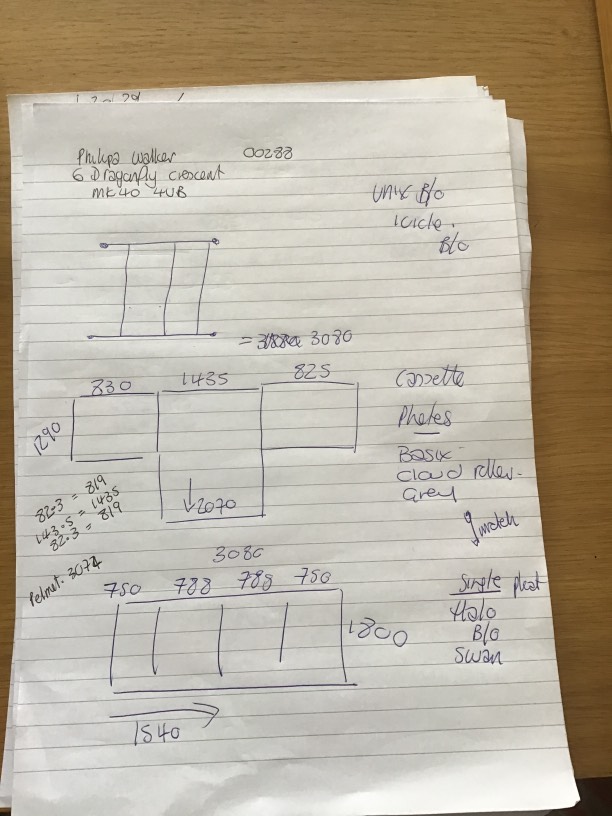 Philipa Walker 00288
6 Dragonfly Crescent
MK40 4UB
Unix B/O
Icicle.
B/O
= 3080
830 1435 825
1290
Cassette
Photos
Basix
cloud roller-
grey
↓2070
82.3 = 819
143.5 = 1435
82.3 = 819
Pelmet. 3074
3080
750 788 788 750
1800
Single pleat
Halo
B/O
Swan
1540